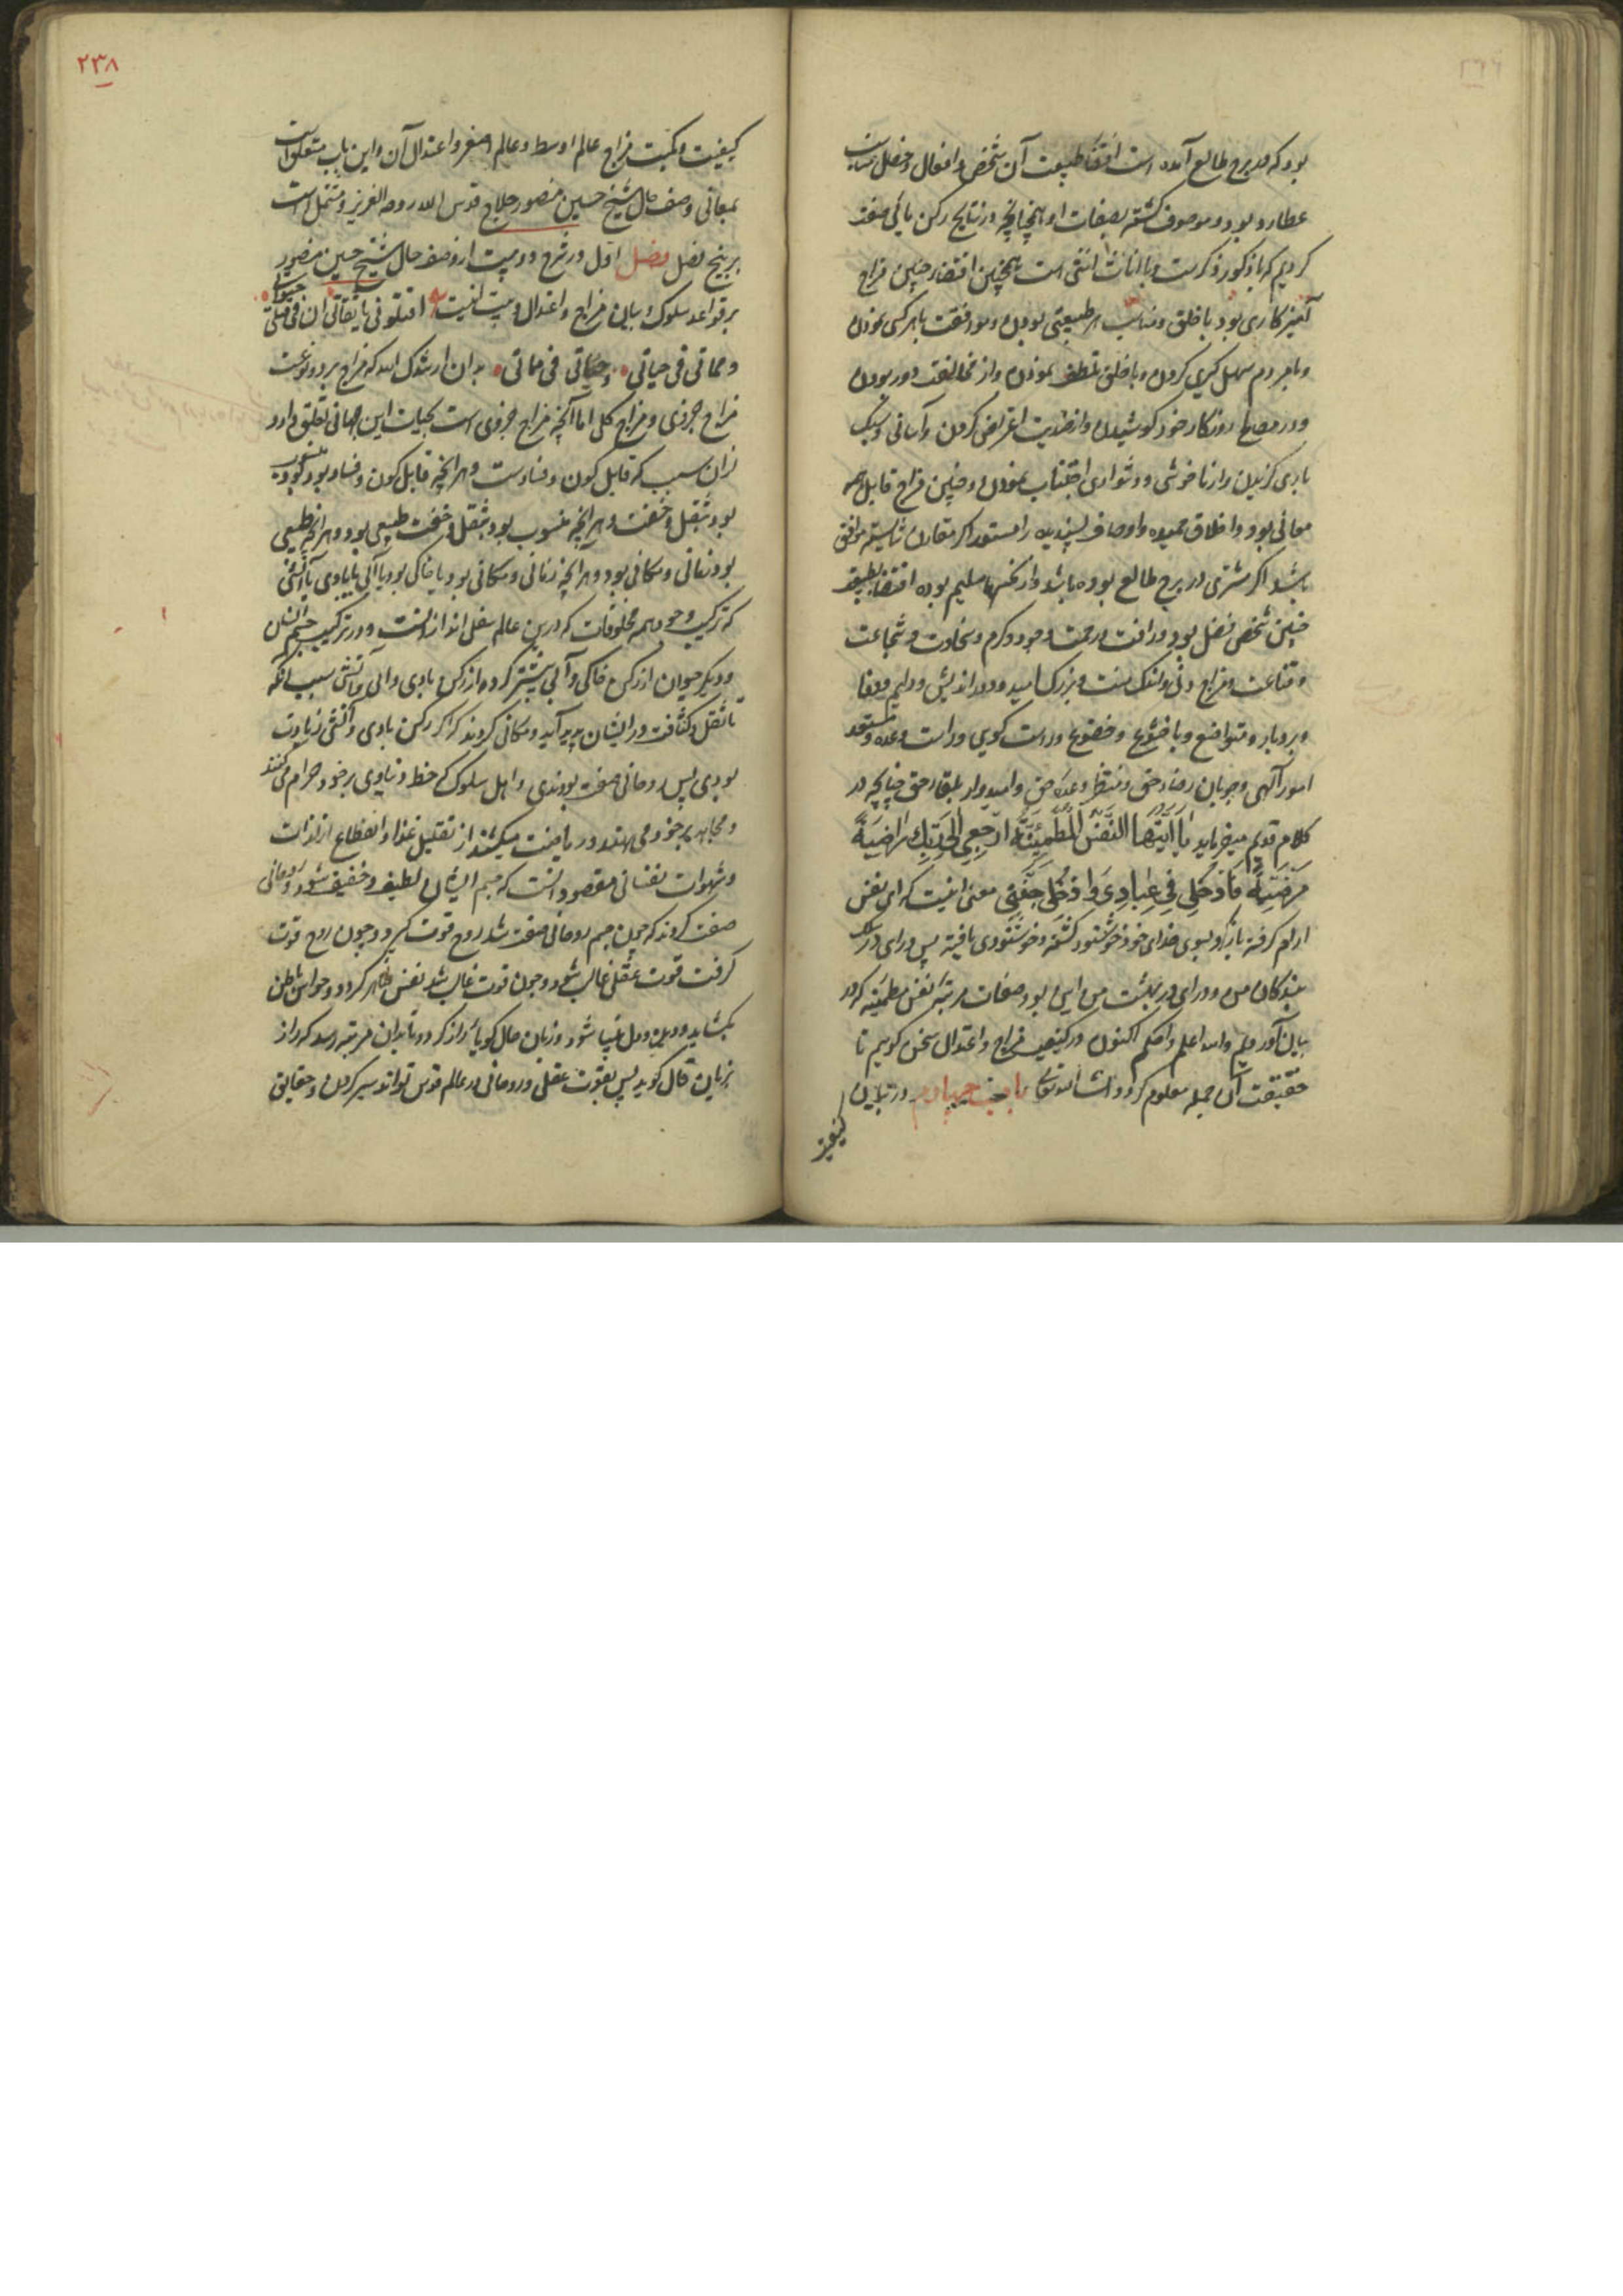 بود که در برج طالع آمده است اقتضا طبیعت آن شخص و افعال و خصل مناسب
عطارد بود و موصوف گشته بصفات او همچنانچه در نتایج رکن مائی صفت
کردیم که با ذکور ذکرست و با اناث انثی است همچنین اقتضا چنین مزاج
آمیزکاری بود با خلق و مناسب هر طبیعتی بودن و موافقت با هر کسی نمودن
و با مردم سهل گیری کردن و با خلق تلطف نمودن و از مخالفت دور بودن
و در مصالح روزکار خود کوشیدن و از ضدیت اعراض کردن و آسانی و سبک
باری گزیدن و از ناخوشی و دشواری اجتناب نمودن و چنین مزاج قابل همه
معانی بود و اخلاق حمیده و اوصاف پسندیده را مستعد اگر مقارن شایسته موافق
باشد اگر مشتری در برج طالع بوده باشد و از نحسها سلیم بوده اقتضا طبیعت
چنین شخص فضل بود و رافت و رحمت و جود و کرم و سخاوت و شجاعت
و قناعت و مزاج دانی و نیک سنت و بزرک امید و دوراندیش و دایم وفا
و بردبار و متواضع و با خشوع و خضوع و راست گوی و راست وعده و مستعد
امور آلهی و جریان رضاء حق و منتظر وعده حق و امیدوار بلقاء حق چنانچه در
کلام قدیم میفرماید یَا اَیَّتُهَا النَّفْسُ الْمُطْمَئِنَّةُ ارْجِعِی اِلَی رَبِّكِ رَاضِیَةً
مَرْضِیَّةً فَادْخُلِی فِی عِبَادِی وَادْخُلِی جَنَّتِی معنی اینست که ای نفس
ارام گرفته بازگرد بسوی خدای خود خوشنود گشته و خوشنودی یافته پس درای در سلک
بندکان من و درای در بهشت من این بود صفات مرتبه نفس مطمئنه که در
بیان آوردیم والله اعلم واحکم اکنون در کیفیت مزاج و اعتدال سخن گوییم تا
حقیقت آن جمله معلوم گردد انشاالله تعالی باب چهارم در بیان
کیفیت
۲۳۸
کیفیت و کمیت مزاج عالم اوسط و عالم اصغر و اعتدال آن و این باب متعلق است
بمعانی وصف حال شیخ حسین منصور حلاج قدس الله روحه العزیز و مشتمل است
بر پنج فصل فصل اول در شرح دو بیت از وصف حال شیخ حسین منصور
بر قواعد سلوک و بیان مزاج و اعتدال و بیت اینست اقتلونی یا ثقاتی ان فی قتلی حیاتی
و مماتی فی حیاتی و حیاتی فی مماتی بدان ارشدک الله که مزاج بر دو نوعست
مزاج جزوی و مزاج کلی اما آنچه مزاج جزوی است بحیات این جهانی تعلق دارد
ازان سبب که قابل کون و فسادست و هر انچه قابل کون و فساد بود منسوب
بود بثقل و خفت و هر انچه منسوب بود بثقل و خفت طبیعی بود و هر انچه طبیعی
بود زمانی و مکانی بود و هر انچه زمانی و مکانی بود یا خاکی بود یا آبی یا بادی یا آتشی
که ترکیب وجود همه مخلوقات که درین عالم سفلی اند ازانست و در ترکیب جسم انسان
و دیگر حیوان از رکن خاکی و آبی بیشتر کرده از رکن بادی و آتشی سبب آنکه
تا ثقل و کثافت در ایشان پدید آید و مکانی گردند که اگر رکن بادی و آتشی زیادت
بودی پس روحانی صفت بودندی و اهل سلوک که حظ دنیاوی بر خود حرام میکنند
و مجاهده بر خود می نهند و ریاضت میکشند از تقلیل غذا و انقطاع از لذات
و شهوات نفسانی مقصود انست که جسم ایشان لطیف و خفیف شود و روحانی
صفت گردند که چون جسم روحانی صفت شد روح قوت گیرد و چون روح قوت
گرفت قوت عقل غالب شود و چون قوت غالب شد نفس طاهر گردد و حواس باطن
بکشاید و دیده دل بینا شود و زبان حال گویا گردد تا بدان مرتبه رسد که راز
بزبان قال گوید پس بقوت عقلی و روحانی در عالم قدس تواند سیر کردن و حقایق